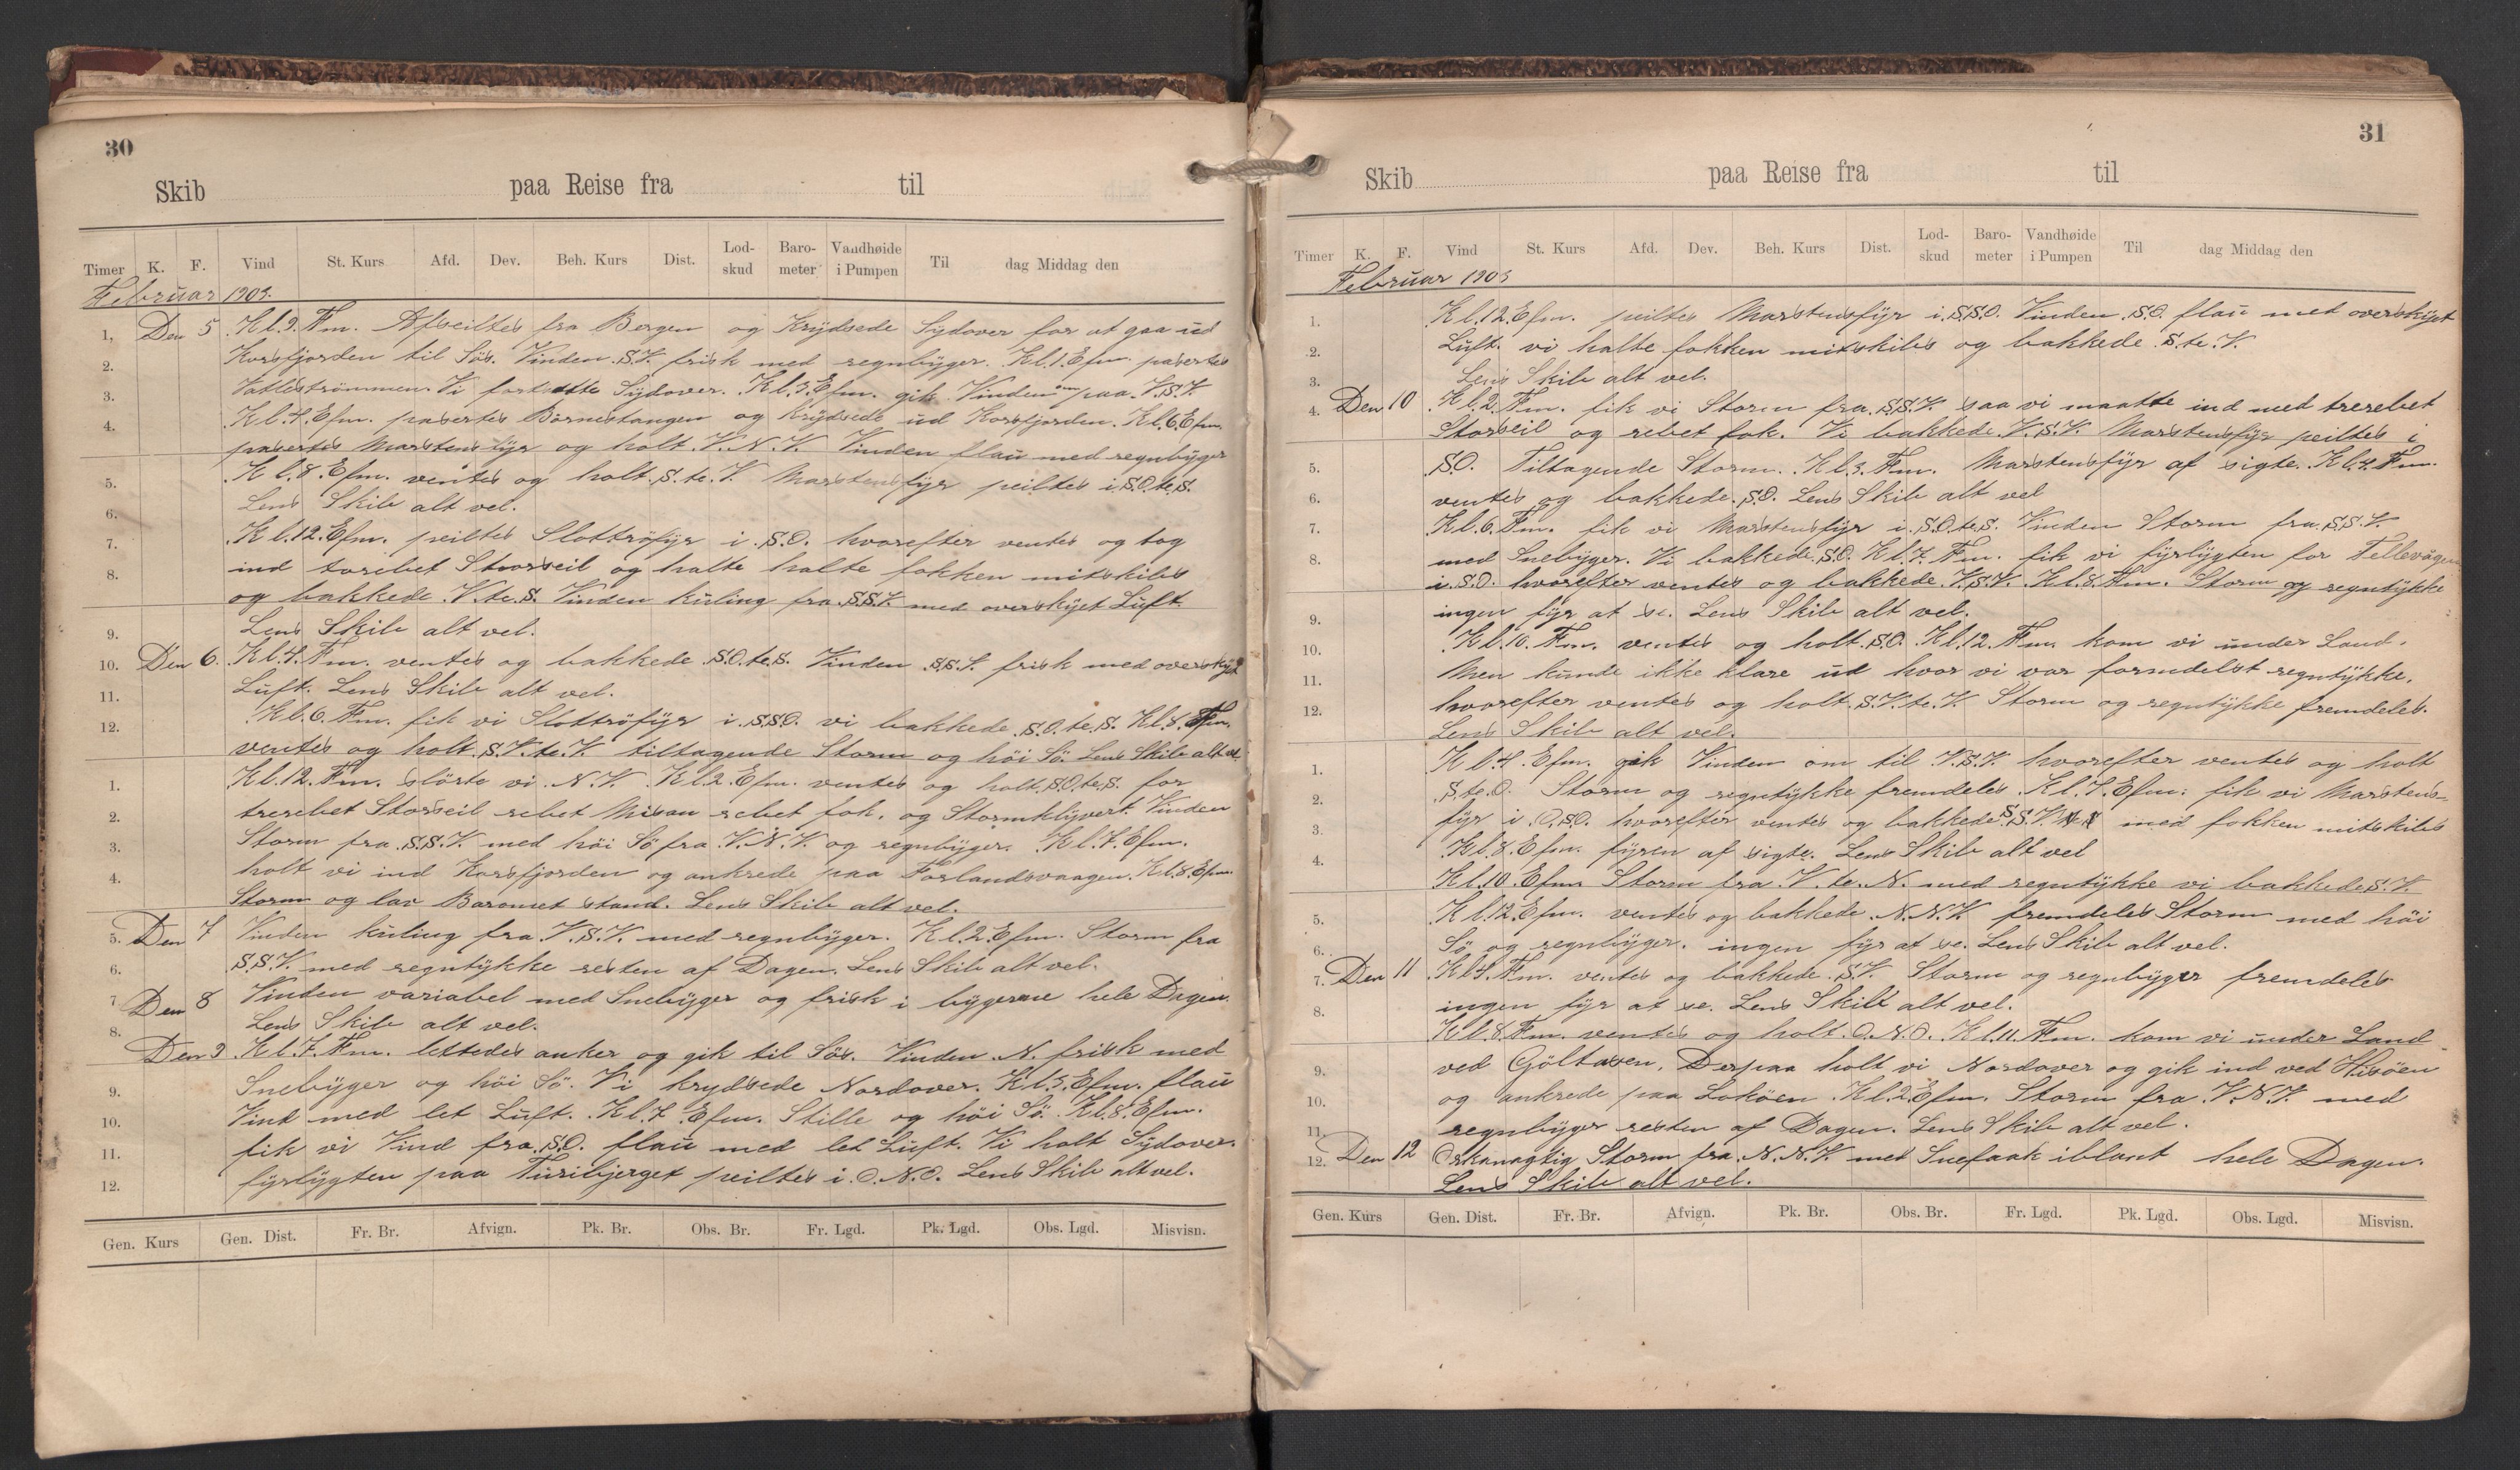 30
Skib paa Reise fra til
Timer K. F. Vind St. Kurs Afd. Dev. Beh. Kurs Dist. Lod-skud Baro-meter Vandhøide i Pumpen Til dag Middag den
Februar 1903.
1. Den 5 Kl.9. Fm. Afseiltes fra Bergen og Krÿdsede Sÿdover for at gaa ud
2. Korsfjorden til Sös. Vinden S.V. frisk med regnbÿger. Kl.1.Efm. pasertes
3. Vatleströmmen. Vi fortsette Sÿdover. Kl.3.Efm. gik Vinden om paa V.S.V.
4. Kl.4.Efm. pasertes Börnestangen og krÿdsede ud Korsfjorden. Kl.6.Efm.
pasertes Marstensfÿr og holt V.N.V. Vinden flau med regnbÿger
5. Kl.8.Efm. ventes og holt S.te.V. Marstensfÿr peiltes i S.O.te.S.
6. Lens Skib alt vel.
7. Kl.12.Efm. peiltes Slottröfÿr i S.O. hvorefter ventes og tog
8. ind torebet Storseil og halte halte fokken mitskibs
og bakkede V.te.S. Vinden kuling fra S.S.V. med overskÿet Luft.
9. Lens Skib alt vel.
10. Den 6. Kl.4.Fm. ventes og bakkede S.O.te.S. Vinden S.S.V. frisk med overskÿet
11. Luft. Lens Skib alt vel.
12. Kl.6.Fm. fik vi Slottröfÿr i S.S.O. vi bakkede S.O.te.S. Kl.8.Fm.
ventes og holt S.V.te.V. tiltagende Storm og höi Sö. Lens Skib alt vel.
1. Kl.12.Fm. slörte vi N.V. Kl.2.Efm. ventes og holt S.O.te.S. for
2. trerebet Storseil rebet Misan rebet fok. og Stormklÿvert. Vinden
3. Storm fra S.S.V. med höi Sö fra V.N.V. og regnbÿger. Kl.7.Efm.
4. holt vi ind Korsfjorden og ankrede paa Forlandsvaagen. Kl.8.Efm.
Storm og lav Baromet stand. Lens Skib alt vel.
5. Den 7 Vinden kuling fra V.S.V. med regnbÿger. Kl.2.Efm. Storm fra
6. S.S.V. med regntÿkke resten af Dagen. Lens Skib alt vel.
7 Den 8 Vinden variabel med Snebÿger og frisk i bÿgerne hele Dagen.
8. Lens Skib alt vel.
Den 9 Kl.7.Fm. lettedes anker og gik til Sös. Vinden N. frisk med
9. Snebÿger og höi Sö. Vi krydsede Nordover. Kl.5.Efm. flau
10. Vind med let Luft. Kl.7.Efm. Stille og höi Sö. Kl.8.Efm.
11. fik vi Vind fra S.O. flau med let Luft. Vi holt Sÿdover.
12. fÿrlÿgten paa Turibjerget peiltes i O.N.O. Lens Skib alt vel.
Gen. Kurs Gen. Dist. Fr. Br. Afvign. Pk. Br. Obs. Br. Fr. Lgd. Pk. Lgd. Obs. Lgd. Misvisn.
31
Skib paa Reise fra til
Timer K. F. Vind St. Kurs Afd. Dev. Beh. Kurs Dist. Lod-skud Baro-meter Vandhøide i Pumpen Til dag Middag den
Februar 1903
1. Kl.12.Efm. peiltes Marstensfÿr i S.S.O. Vinden S.O. flau med overskÿet
2. Luft. vi halte fokken mitskibs og bakkede S.te.V.
3. Lens Skib alt vel.
4. Den 10 Kl.2.Fm. fik vi Storm fra S.S.V. saa vi maatte ind med trerebet
Storseil og rebet fok. Vi bakkede V.S.V. Marstensfÿr peiltes i
5. S.O. Tiltagende Storm. Kl.3.Fm. Marstensfÿr af sigte. Kl.4.Fm.
6. ventes og bakkede S.O. Lens Skib alt vel
7. Kl.6.Fm. fik vi Marstensfÿr i S.O.te.S. Vinden Storm fra S.S.V.
8. med Snebÿger. Vi bakkede S.O. Kl.7.Fm. fik vi fÿrlÿgten for Fellevågen
i S.O. hvorefter ventes og bakkede V.S.V. Kl.8.Fm. Storm og regntÿkke
9. ingen fÿr at se. Lens Skib alt vel.
10. Kl.10.Fm. ventes og holt S.O. Kl.12.Fm. kom vi under Land.
11. Men kunde ikke klare ud hvor vi var formedelst regntÿkke.
12. hvorefter ventes og holt S.V.te.V. Storm og regntÿkke fremdeles.
Lens Skib alt vel.
1. Kl.4.Efm. gik Vinden om til V.S.V. hvorefter ventes og holt
2. S.te.O. Storm og regntÿkke fremdeles. Kl.7.Efm. fik vi Marstens-
3. fÿr i O.S.O. hvorefter ventes og bakkede S.S.V. med fokken mitskibs
4. Kl.8.Efm. fÿren af sigte. Lens Skib alt vel
Kl.10.Efm. Storm fra V.te.N. med regntÿkke vi bakkede S.V.
5. Kl.12.Efm. ventes og bakkede N.N.V. fremdeles Storm med höi
6. Sö og regnbÿger. ingen fÿr at se. Lens Skib alt vel.
7. Den 11 Kl.4.Fm. ventes og bakkede S.V. Storm og regnbÿger fremdeles
8. ingen fÿr at se. Lens Skib alt vel.
Kl.8.Fm. ventes og holt O.N.O. Kl.11.Fm. kom vi under Land
9. ved Göltasen. Derpaa holt vi Nordover og gik ind ved Hisöen
10. og ankrede paa Loköen Kl.2.Efm. Storm fra V.N.V. med
11. regnbÿger resten af Dagen. Lens Skib alt vel.
12. Den 12 Orkanagtig Storm fra N.N.V. met Snefaak iblant hele Dagen.
Lens Skib alt vel.
Gen. Kurs Gen. Dist. Fr. Br. Afvign. Pk. Br. Obs. Br. Fr. Lgd. Pk. Lgd. Obs. Lgd. Misvisn.